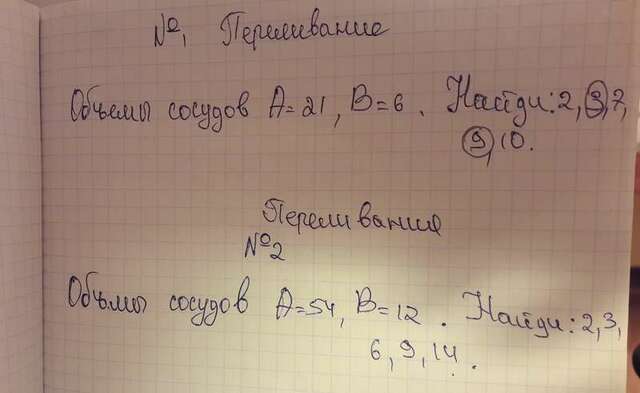 №1 Переливание
Объемы сосудов A=21, B=6. Найди: 2, 3, 7,
9, 10.
Переливания
№2
Объёмы сосудов A=54, B=12. Найди: 2, 3,
6, 9, 14.